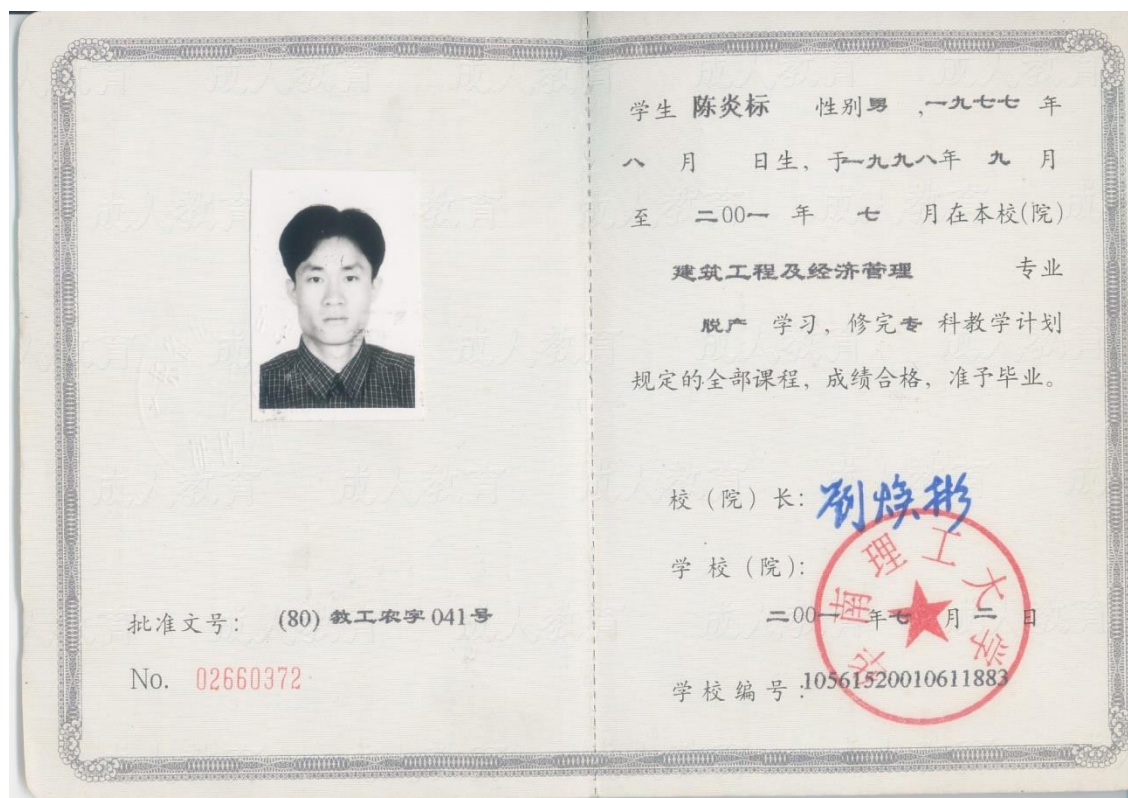 批准文号: (80) 教工农字 041号
No. 02660372
学生 陈炎标 性别男 ,一九七七 年
八 月 日生, 于一九九八年 九 月
至 二00一 年 七 月在本校(院)
建筑工程及经济管理 专业
脱产 学习, 修完专 科教学计划
规定的全部课程, 成绩合格, 准予毕业。
校 (院) 长: 刘焕彬
学 校 (院):
华南理工大学
二00一 年 七 月 二 日
学 校 编 号:10561520010611883
成人教育